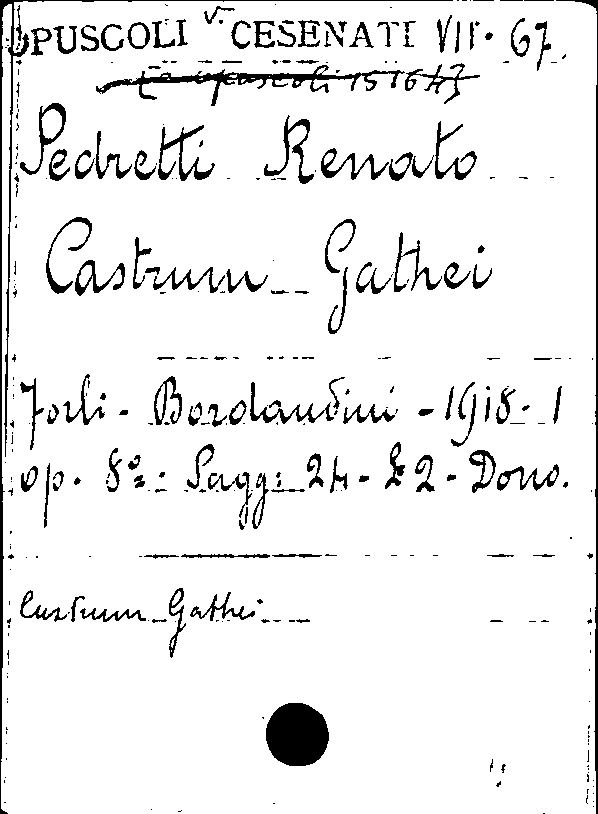 OPUSCOLI v. CESENATI VII. 67.
Pedretti Renato
Castrum Gathei
Forlì - Bordandini - 1918 - 1
op. 8º. Pagg: 24 - £ 2 - Dono.
Castrum Gathei